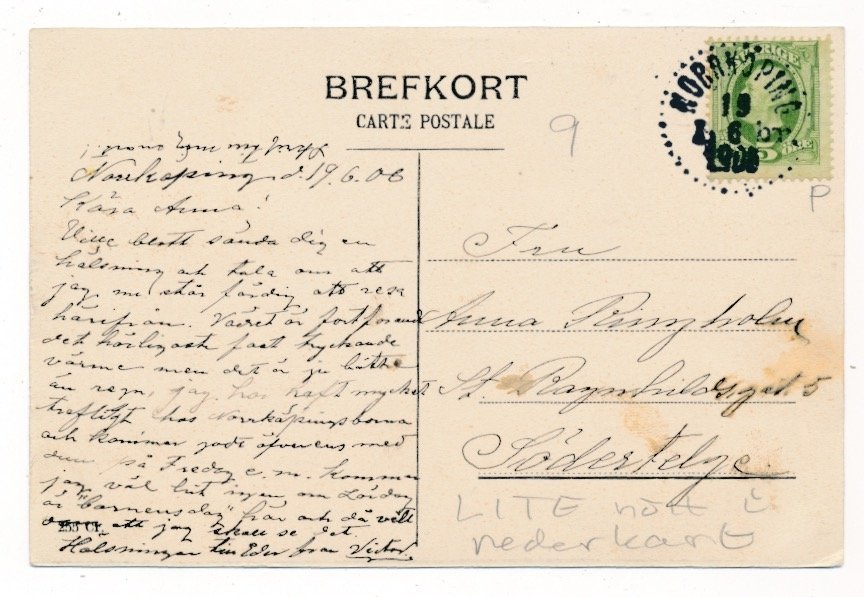 BREFKORT
CARTE POSTALE
9
NORRKÖPING
19
6
1906
SVERIGE
P
Norrköping d. 19.6.06
Kära Anna!
Ville blott sända dig en
hälsning och tala om att
jag nu står färdig att resa
härifrån. Vädret är fortfarande
det härligaste fast tryckande
värme men det är ju bättre
än regn, jag har haft mycket
trefligt hos Norrköpingsborna
och kommer godt öfverens med
dem på Fredag e.m. kommer
jag väl hit igen om Lördag
är "barnensdag" här och då vill
att jag skall se det.
Hälsningar till Eder från Victor.
253 Ch.
Fru
Anna Ringholm
St. Ragnhildsgat. 5
Södertelge
LITE nött i
nederkant